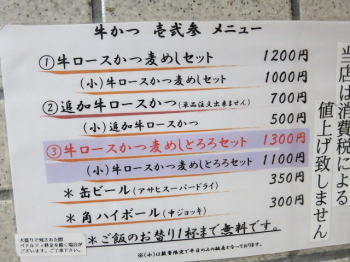 牛かつ 壱弐参 メニュー
①牛ロースかつ麦めしセット 1200円
(小)牛ロースかつ麦めしセット 1000円
②追加牛ロースかつ(単品注文出来ません) 700円
(小)追加牛ロースかつ 500円
③牛ロースかつ麦めしとろろセット 1300円
(小)牛ロースかつ麦めしとろろセット 1100円
*缶ビール(アサヒスーパードライ) 350円
*角ハイボール(サジョッキ) 300円
*ご飯のお替り1杯まで無料です。
※(小)は数量限定で平日のみの販売となっております。
当店は消費税による
値上げ致しません
大盛りで残された際
ペナルティ料金を頂く場合が
ございます。ご了承下さい。